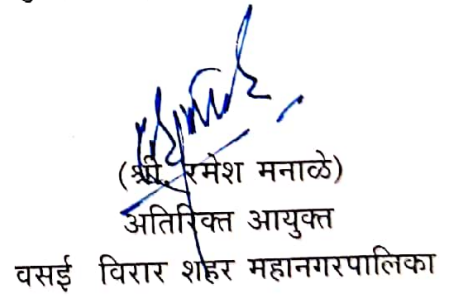 (श्री. रमेश मनाळे)
अतिरिक्त आयुक्त
वसई विरार शहर महानगरपालिका